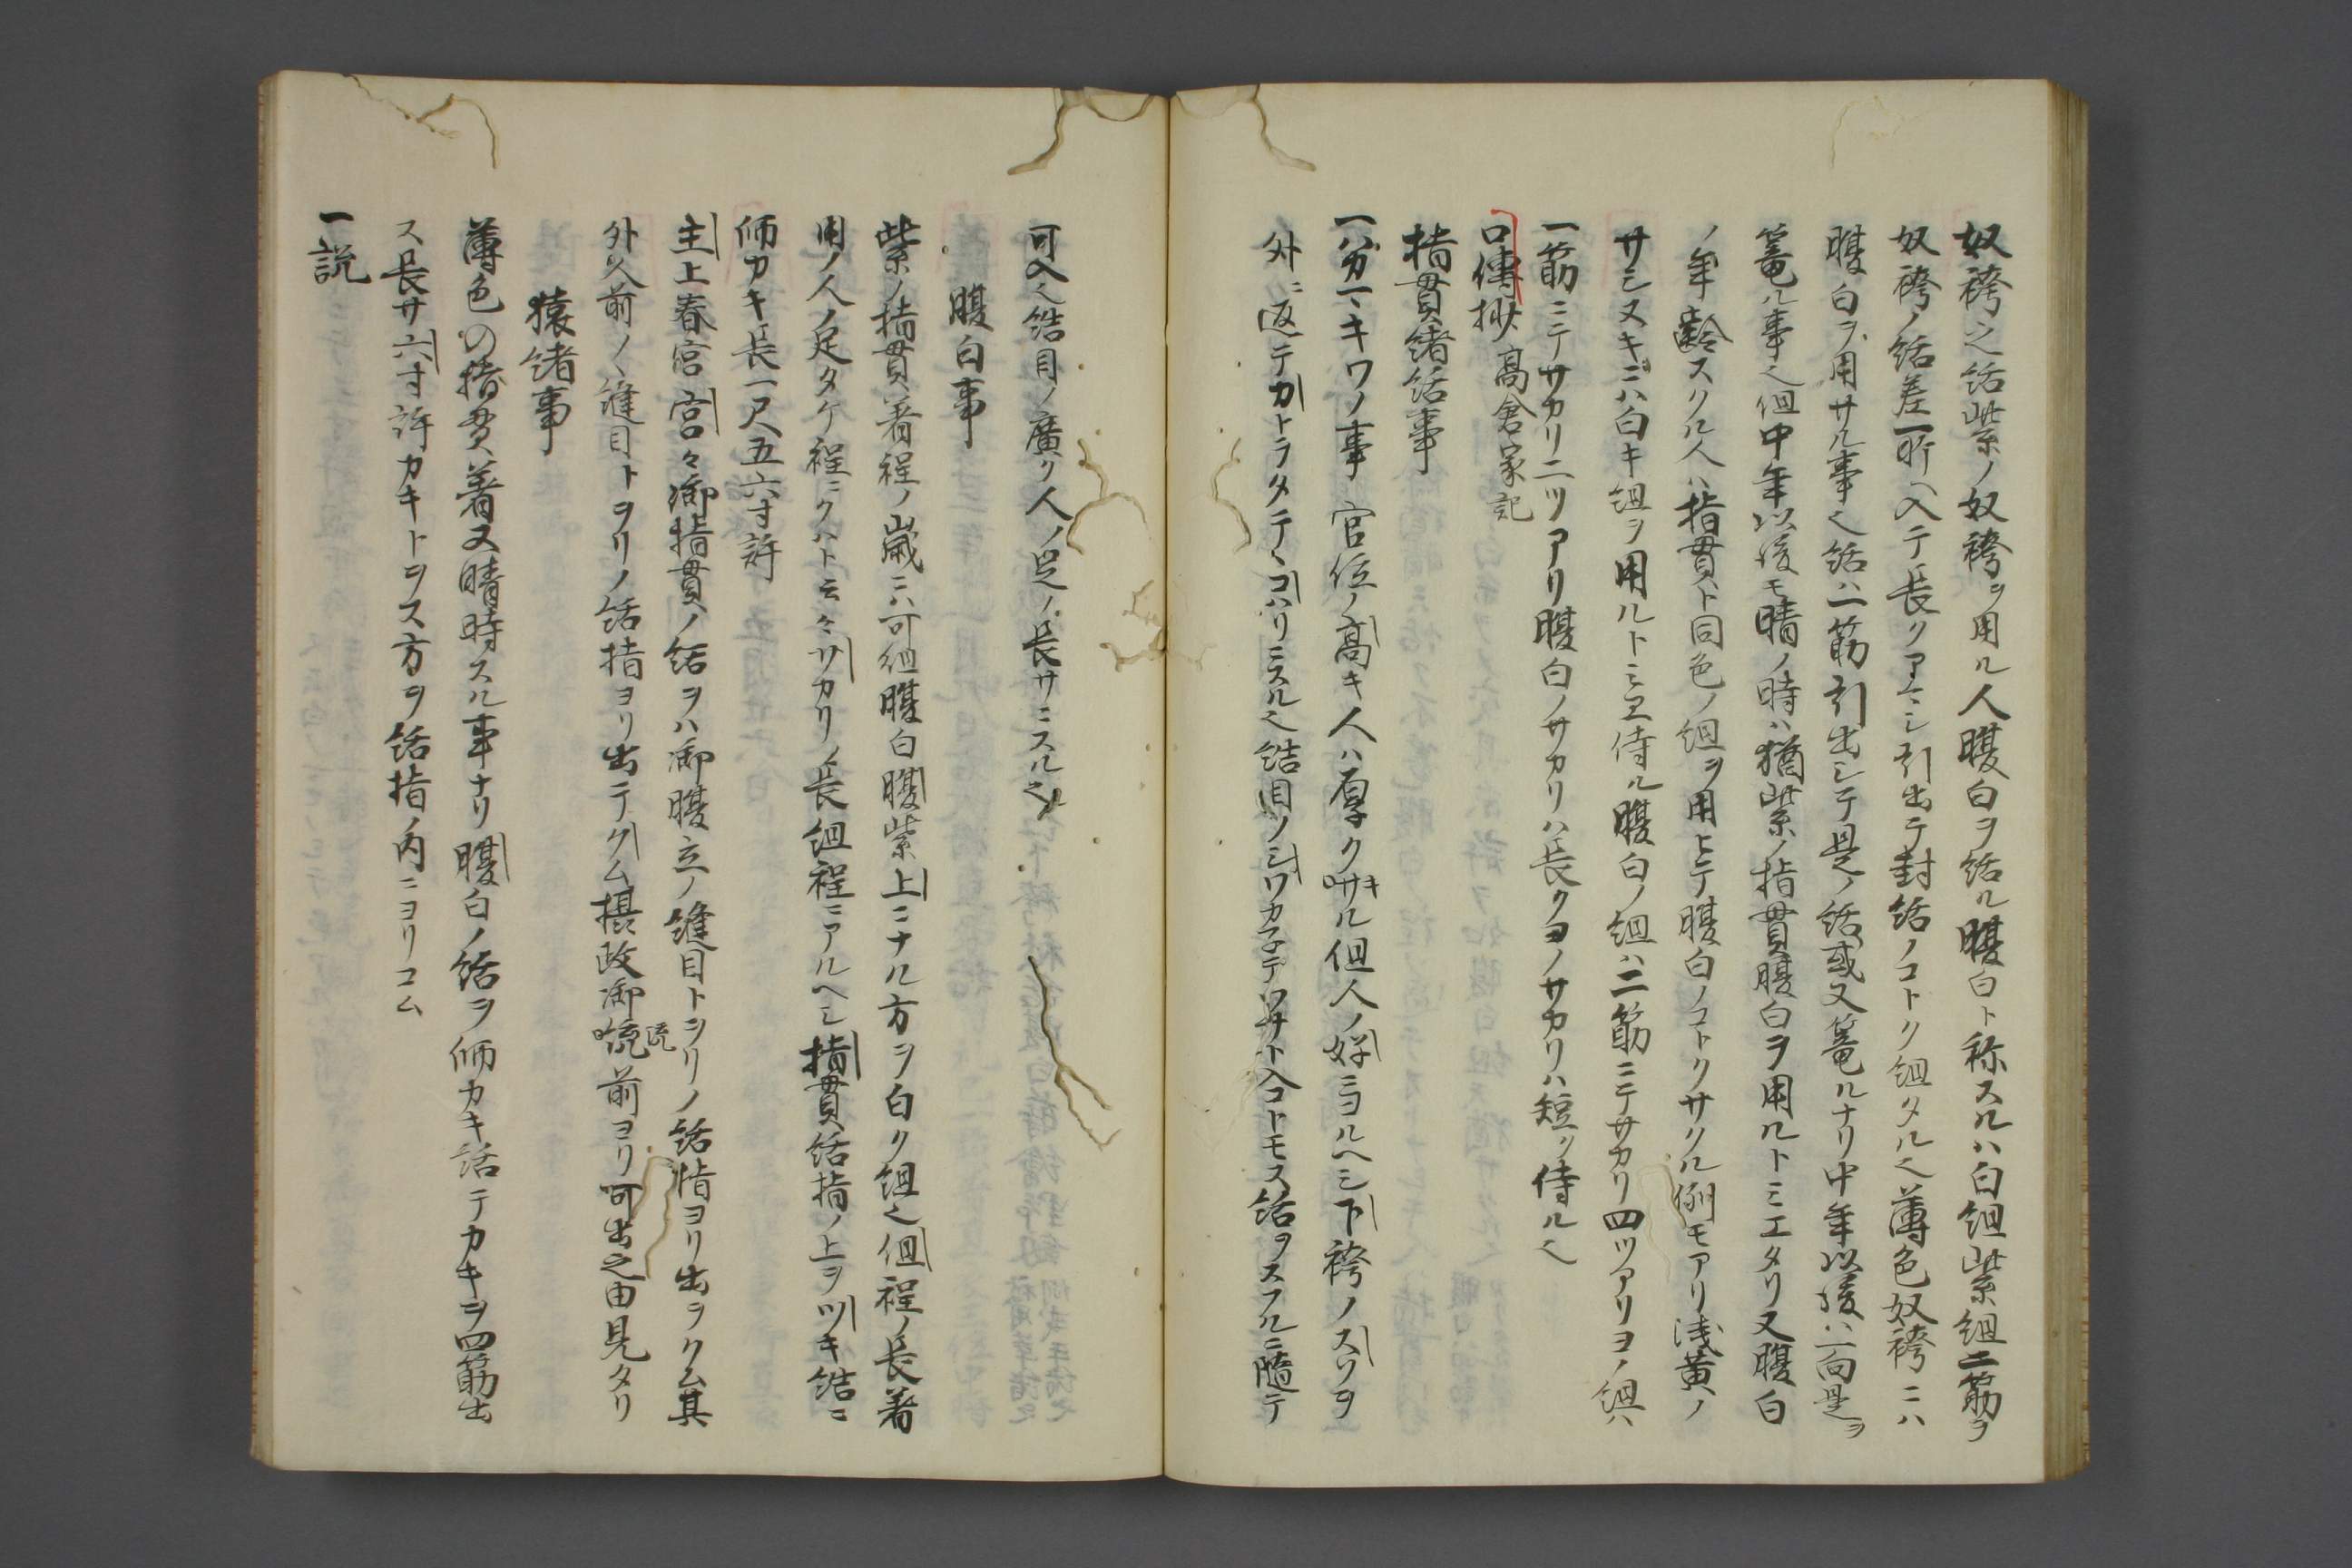 奴袴之括紫ノ奴袴ヲ用ル人腹白ヲ括ル腹白ト称スルハ白組紫組二筋ヲ
奴袴ノ括差一所ヘ入テ長クアマシ引出テ封括ノコトク組タル也薄色奴袴ニハ
腹白ヲ用サル事也括ハ一筋引出シテ是ノ括或又篭ルナリ中年以後ハ一向是ヲ
篭ル事也但中年以後モ晴ノ時ハ猶紫ノ指貫腹白ヲ用ルトミエタリ又腹白
ノ年齢スクル人ハ指貫ト同色ノ組ヲ用ヒテ腹白ノコトクサクル例モアリ浅黄ノ
サシヌキニハ白キ組ヲ用ルトミエ侍ル腹白ノ組ハ二筋ニテサカリ四ツアリヨノ組ハ
一筋ニテサカリ二ツアリ腹白ノサカリハ長クヨノサカリハ短ク侍ル也
口傳抄 高倉家記
指貫緒括事
一ハカマキワノ事 官位ノ高キ人ハ厚クサキル但人ノ好ニヨルヘシ下袴ノスソヲ
外ニ返テカトラタテヽコハリニスル也結目ノシワカ子テ入コトモス括ヲスフルニ隨テ
可入也結目ノ廣ク人ノ足ノ長サニスル也
腹白事
紫ノ指貫着程ノ歳ニハ可組腹白腹紫上ニナル方ヲ白ク組也但程ノ長着
用ノ人ノ足タケ程ニクハト云々サカリノ長組程ニアルヘシ指貫括指ノ上ヲツキ結ニ
師カキ長一尺五六寸許
主上春宮宮々御指貫ノ括ヲハ御腹立ノ縫目トヲリノ括指ヨリ出ヲクム其
外人前ノヽ縫目トヲリノ括指ヨリ出テクム摂政御流前ヨリ可出之由見タリ
猿緒事
薄色の指貫着又晴時スル事ナリ腹白ノ括ヲ師カキ括テカキヲ四筋出
ス長サ六寸許カキトヲス方ヲ括指ノ内ニヨリコム
一説